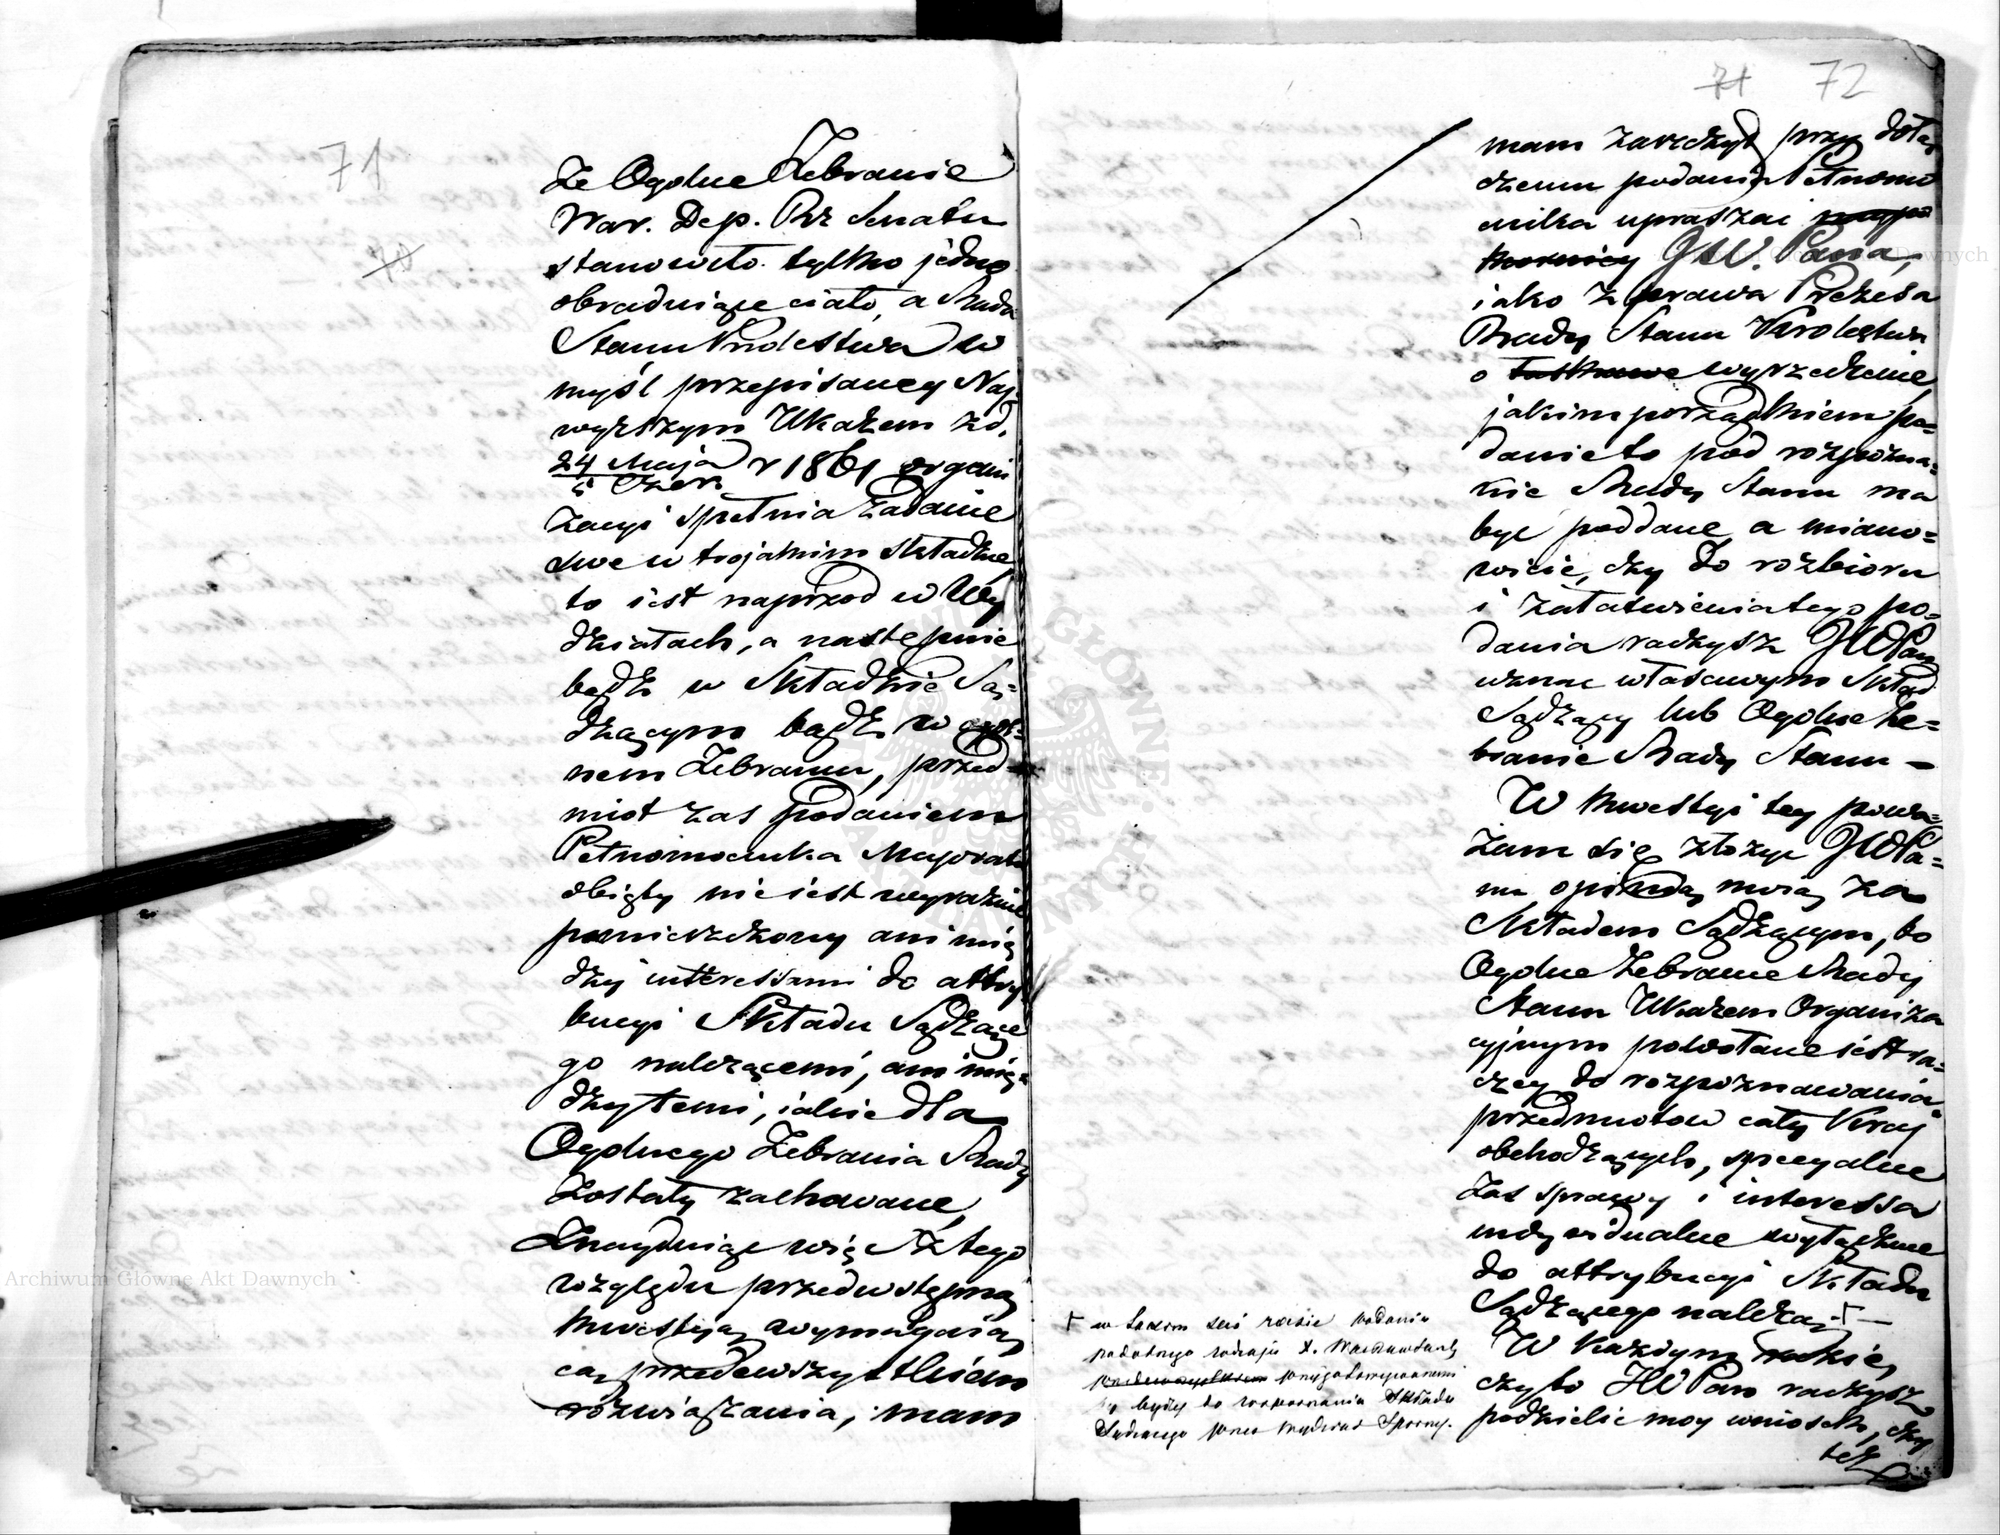 71
70
Że Ogólne Zebranie
War. Dep. Rz Senatu
stanowiło tylko jedno
obradujące ciało, a Rada
Stanu Królestwa w
myśl przepisaney Naj-
wyższym Ukazem z d.
24 Maja
5 Czer. r 1861 organi
zacyi spełnia zadanie
swe w trojakim składzie,
to iest naprzod w Wy
działach, a następnie
bądź w Składzie Są=
dzącym bądź w ogól=
nem Zebraniu, przed=
miot zas podaniem
Pełnomocnika Majoratu
obięty nie iest wyraźnie
pomieszczony ani mię
dzy interessami do attry
bucyi Składu Sądzące
go należącemi, ani mię=
dzy temi, iakie dla
Ogólnego Zebrania Rady
zostały zachowane,
Znayduiąc więc z tego
względu przedwstępną
kwestyą wymagaią
cą przedewszystkiem
rozwiązania, mam
71 72
mam zaszczyt przy dołą
czeniu podania Pełnomo
cnika upraszać naypo
korniey JW. Pana,
iako z prawa Prezesa
Rady Stanu Królestwa
o łaskawe wyrzeczenie,
jakim porządkiem po=
danie to pod rozpozna=
nie Rady Stanu ma
być poddane, a miano=
wicie, czy do rozbioru
i załatwienia tego po=
dania raczysz JWPan
uznać właściwym Skład
Sądzący lub Ogólne Ze=
branie Rady Stanu —
W kwestyi tey powa=
żam się złożyć JWPa=
nu opinią moią za
Składem Sądzącym, bo
Ogólne Zebranie Rady
Stanu Ukazem Organiza
cyjnym powołane iest ra=
czey do rozpoznawania
przedmiotow cały Kraj
obchodzących, specyalne
zas sprawy i interessa
indywidualne wyłącznie
do attrybucyi Składu
Sądzącego należą. + —
W każdym razie,
czy to JW Pan raczysz
podzielić moy wniosek, czy
też
+ w takim zaś razie podania
podobnego rodzaju
przedewszystkiem przygotowywanemi
by były do rozpoznania Składu
Sądzącego przez Wydział Sporny.
Archiwum Główne Akt Dawnych
Archiwum Główne Akt Dawnych